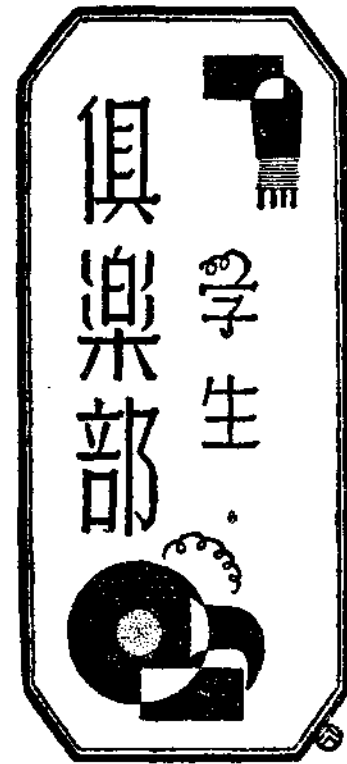 学生
倶楽部